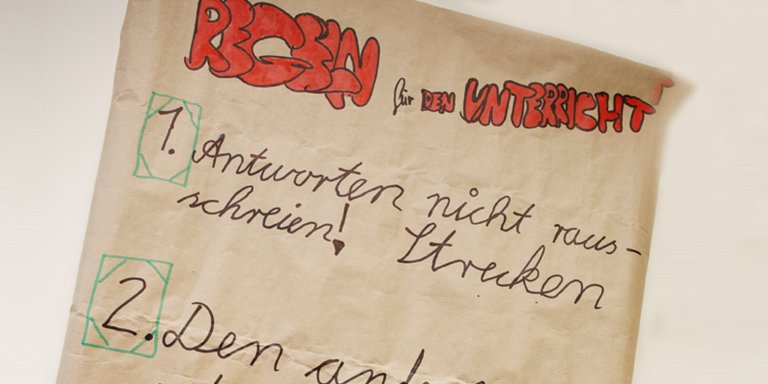 REGELN für DEN UNTERRICHT
1. Antworten nicht raus-
schreien! Strecken
2. Den